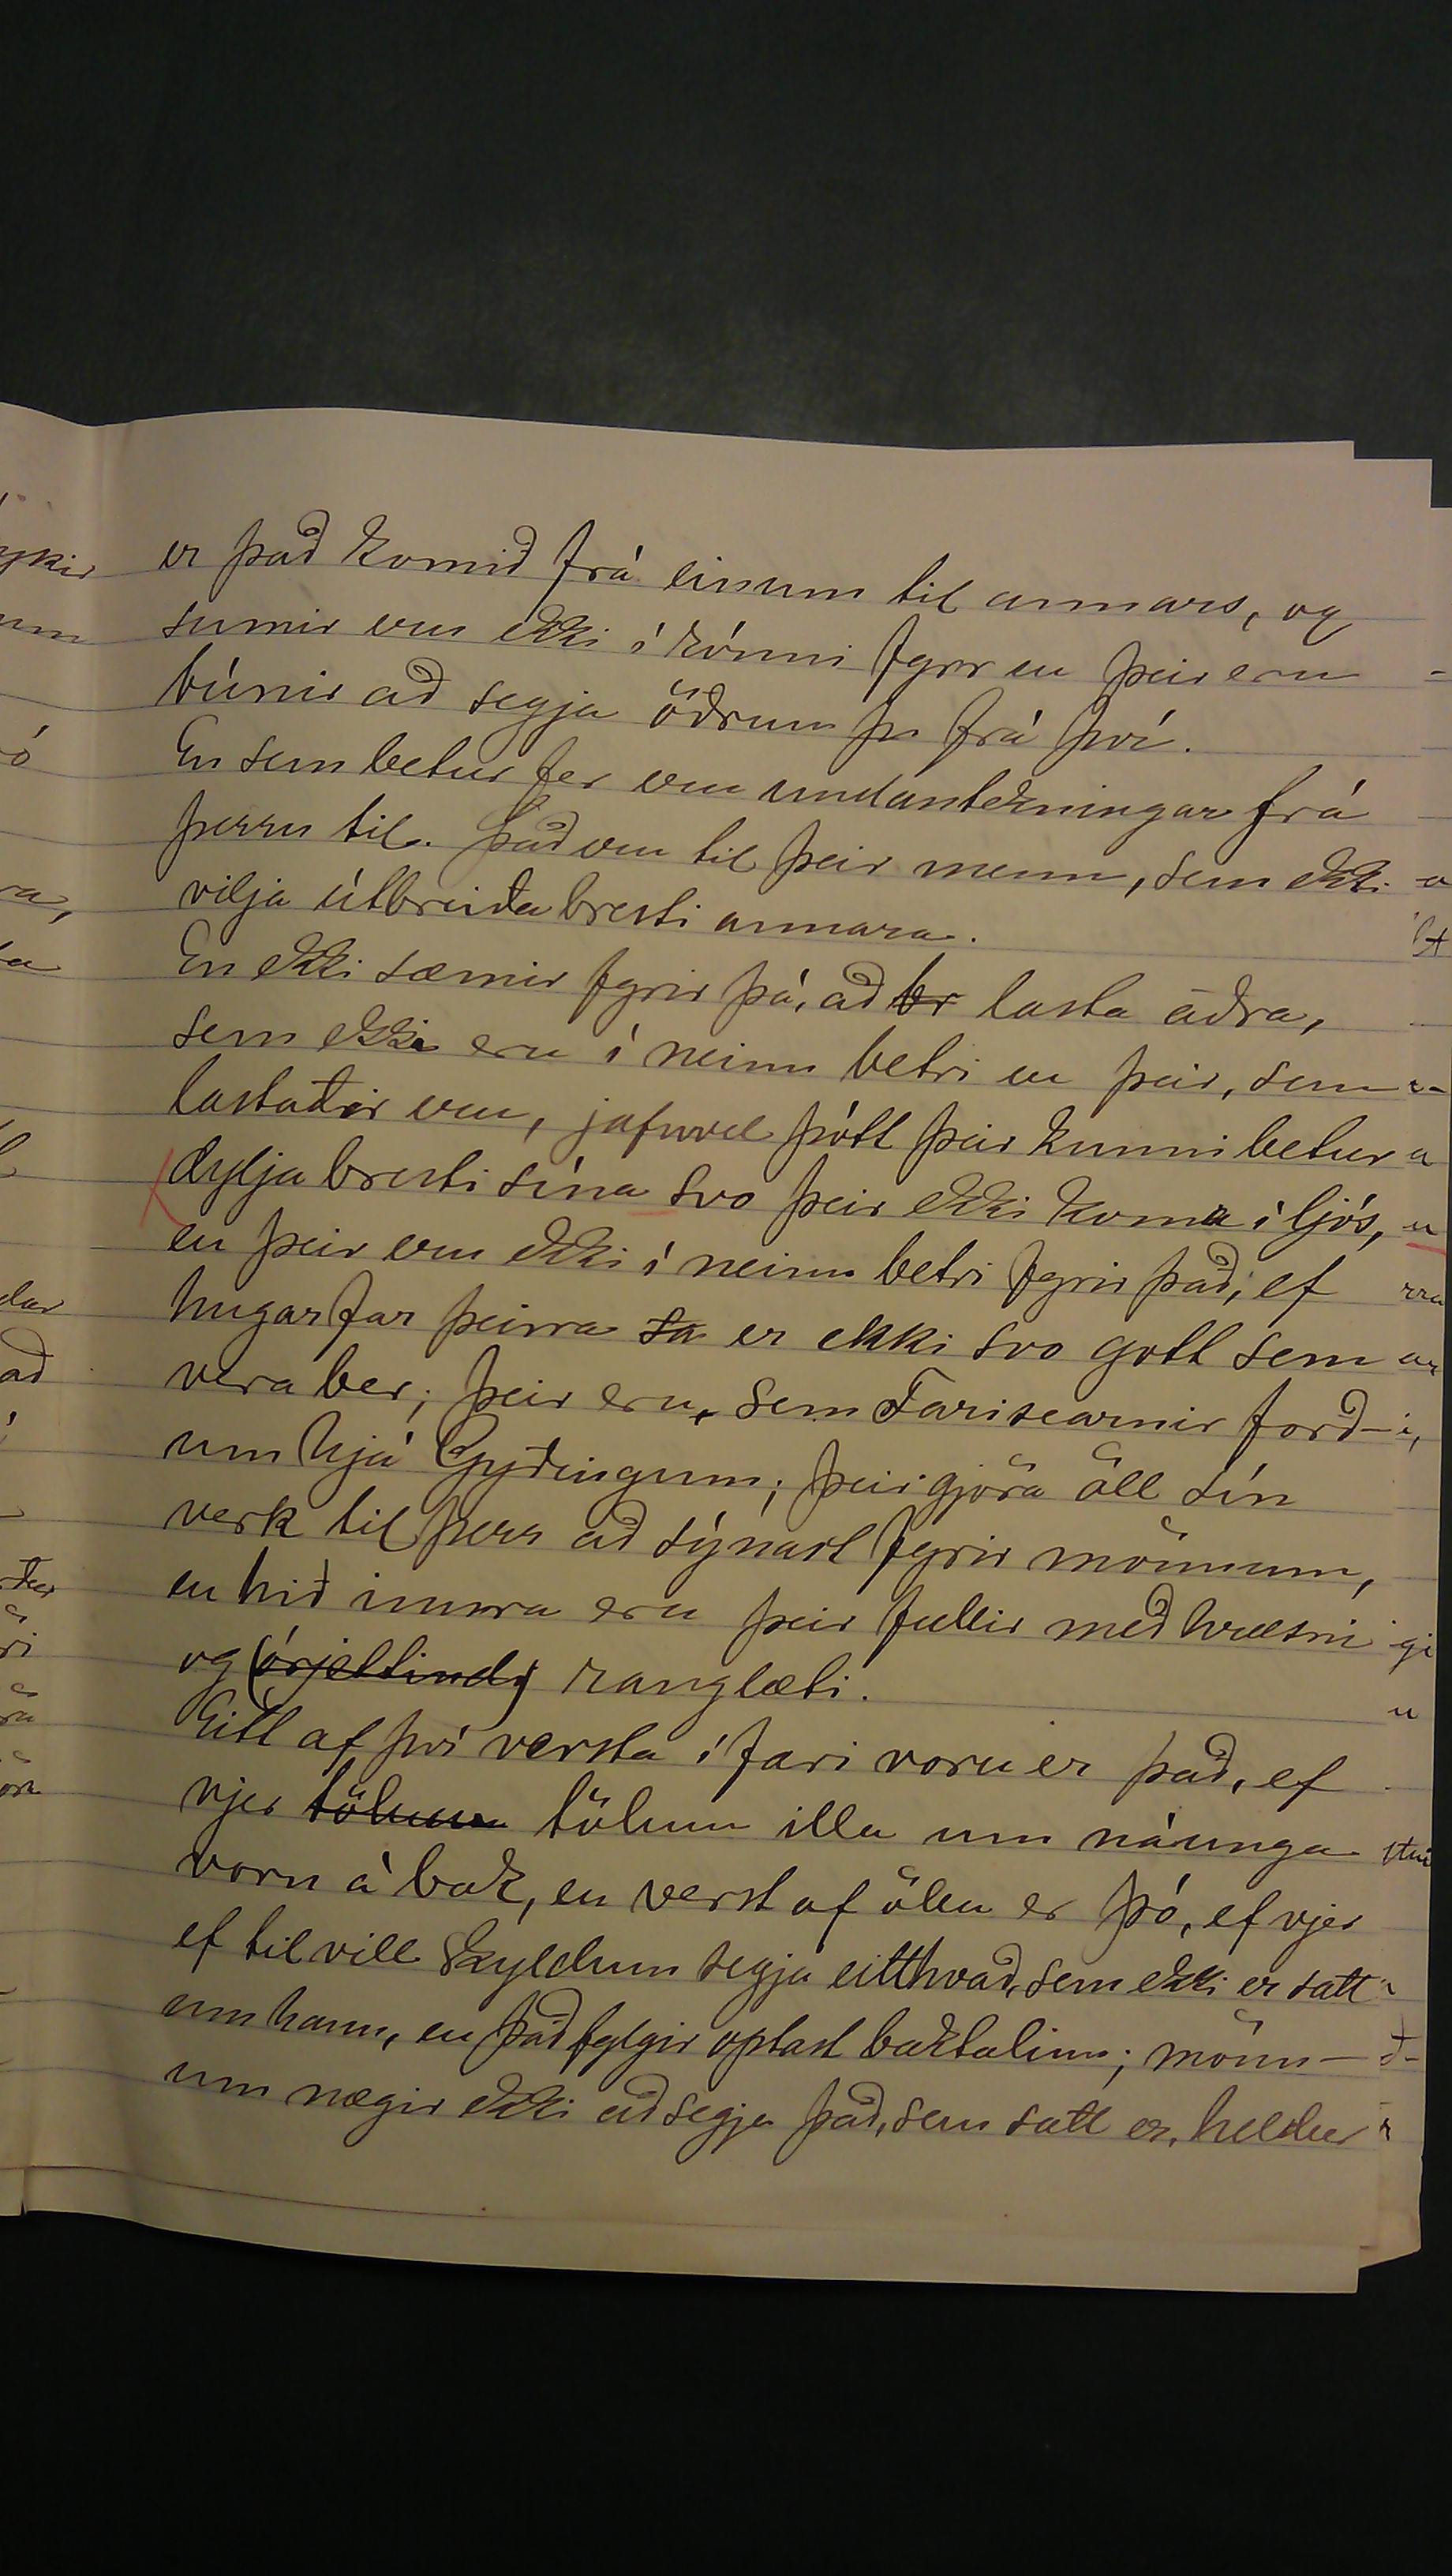 er það komið frá einum til annars, og
sumir eru ekki í rónni fyrr en þeir eru
búnir að segja öðrum þr frá því.
En sem betur fer eru undantekningar frá
þessu til. Það eru til þeir menn, sem ekki
vilja útbreiða bresti annara.
En ekki sæmir fyrir þá, að br lasta aðra,
sem ekki eru í neinu betri en þeir, sem
lastaðir eru, jafnvel þótt þeir kunni betur
dylja bresti sína svo þeir ekki koma í ljós,
en þeir eru ekki í neinu betri fyrir það, ef
hugarfar þeirra sa er ekki svo gott sem
vera ber; þeir eru, sem Farisearnir forð-
um hjá Gyðingum; þeir gjöra öll sín
verk til þess að sýnast fyrir mönnum,
en hið innra eru þeir fullir með hræsni
og (órjettindi) ranglæti.
Eitt af því versta í fari voru er það, ef
vjer tölum tölum illa um náunga
vorn á bak, en verst af öllu er þó, ef vjer
ef til vill skyldum segja eitthvað, sem ekki er satt
um hann, en það fylgir optast baktalinu; mönn-
um nægir ekki að segja það, sem satt er, heldur